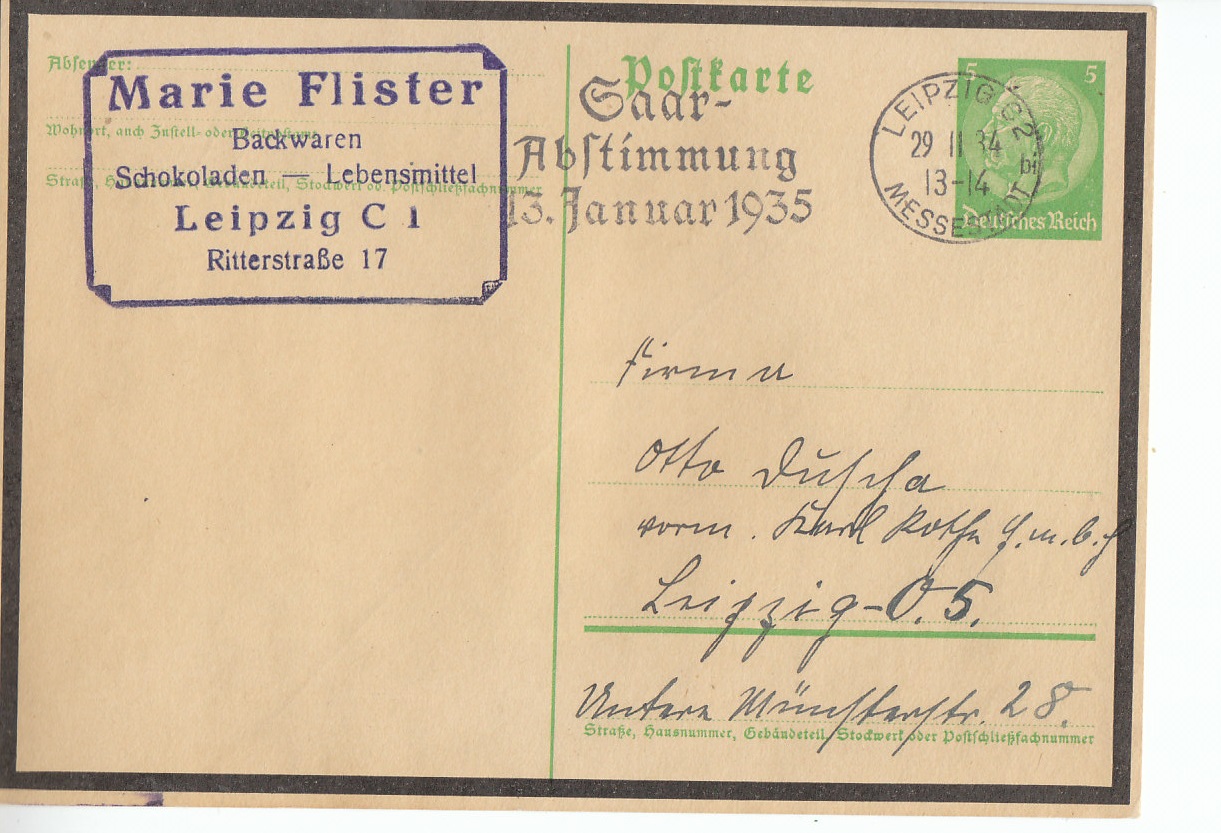 Absender:
Marie Flister
Wohnort, auch Zustell- oder Leitpostamt
Backwaren
Schokoladen — Lebensmittel
Straße, Hausnummer, Gebäudeteil, Stockwerk od. Postschließfachnummer
Leipzig C 1
Ritterstraße 17
Postkarte
Saar-
Abstimmung
13. Januar 1935
LEIPZIG C 2
29 11 34
bi
13-14
MESSESTADT
5 5
Deutsches Reich
Firma
Otto Duscha
vorm. Karl Rothe G.m.b.H
Leipzig-O. 5.
Untere Münsterstr. 28.
Straße, Hausnummer, Gebäudeteil, Stockwerk oder Postschließfachnummer